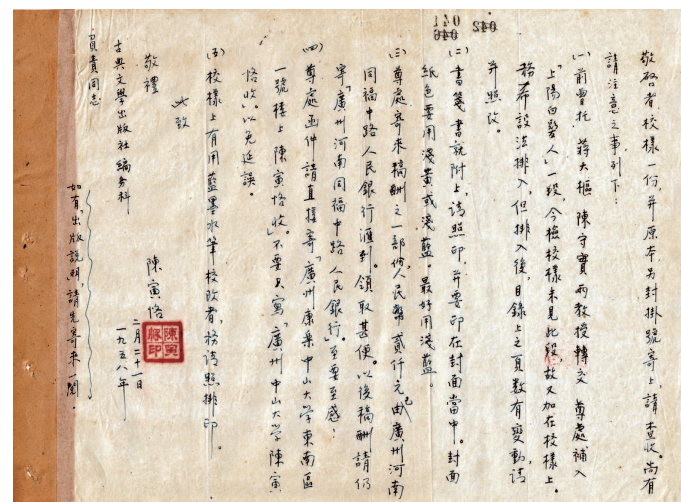 042
046
敬啓者：校樣一份，并原本另封掛號寄上，請查收。尚有
請注意之事列下：
(一)前曾托蔣大樞陳守實兩教授轉交尊處補入
「上陽白髮人」一段，今檢校樣未見此段，故又加在校樣上。
務希設法排入，但排入後，目錄上之頁數有變動，請
并照改。
(二)書箋書就附上，請照印，并要印在封面當中。封面
紙色要用淺黃或淺藍。最好用淺藍。
(三)尊處寄來稿酬之一部份人民幣貳仟元已由廣州河南
同福中路人民銀行滙到，領取甚便。以後稿酬請仍
寄「廣州河南同福中路人民銀行」。至要至感。
(四)尊處函件請直接寄「廣州康樂中山大學東南區
一號樓上陳寅恪收」。不要只寫「廣州中山大學陳寅
恪收」，以免延誤。
(五)校樣上有用藍墨水筆校改者，務請照排印。
此致
敬禮
古典文學出版社編務科
負責同志
陳寅恪
陳寅恪印
二月二十一日
一九五八年
如有「出版說明」請先寄來一閱。